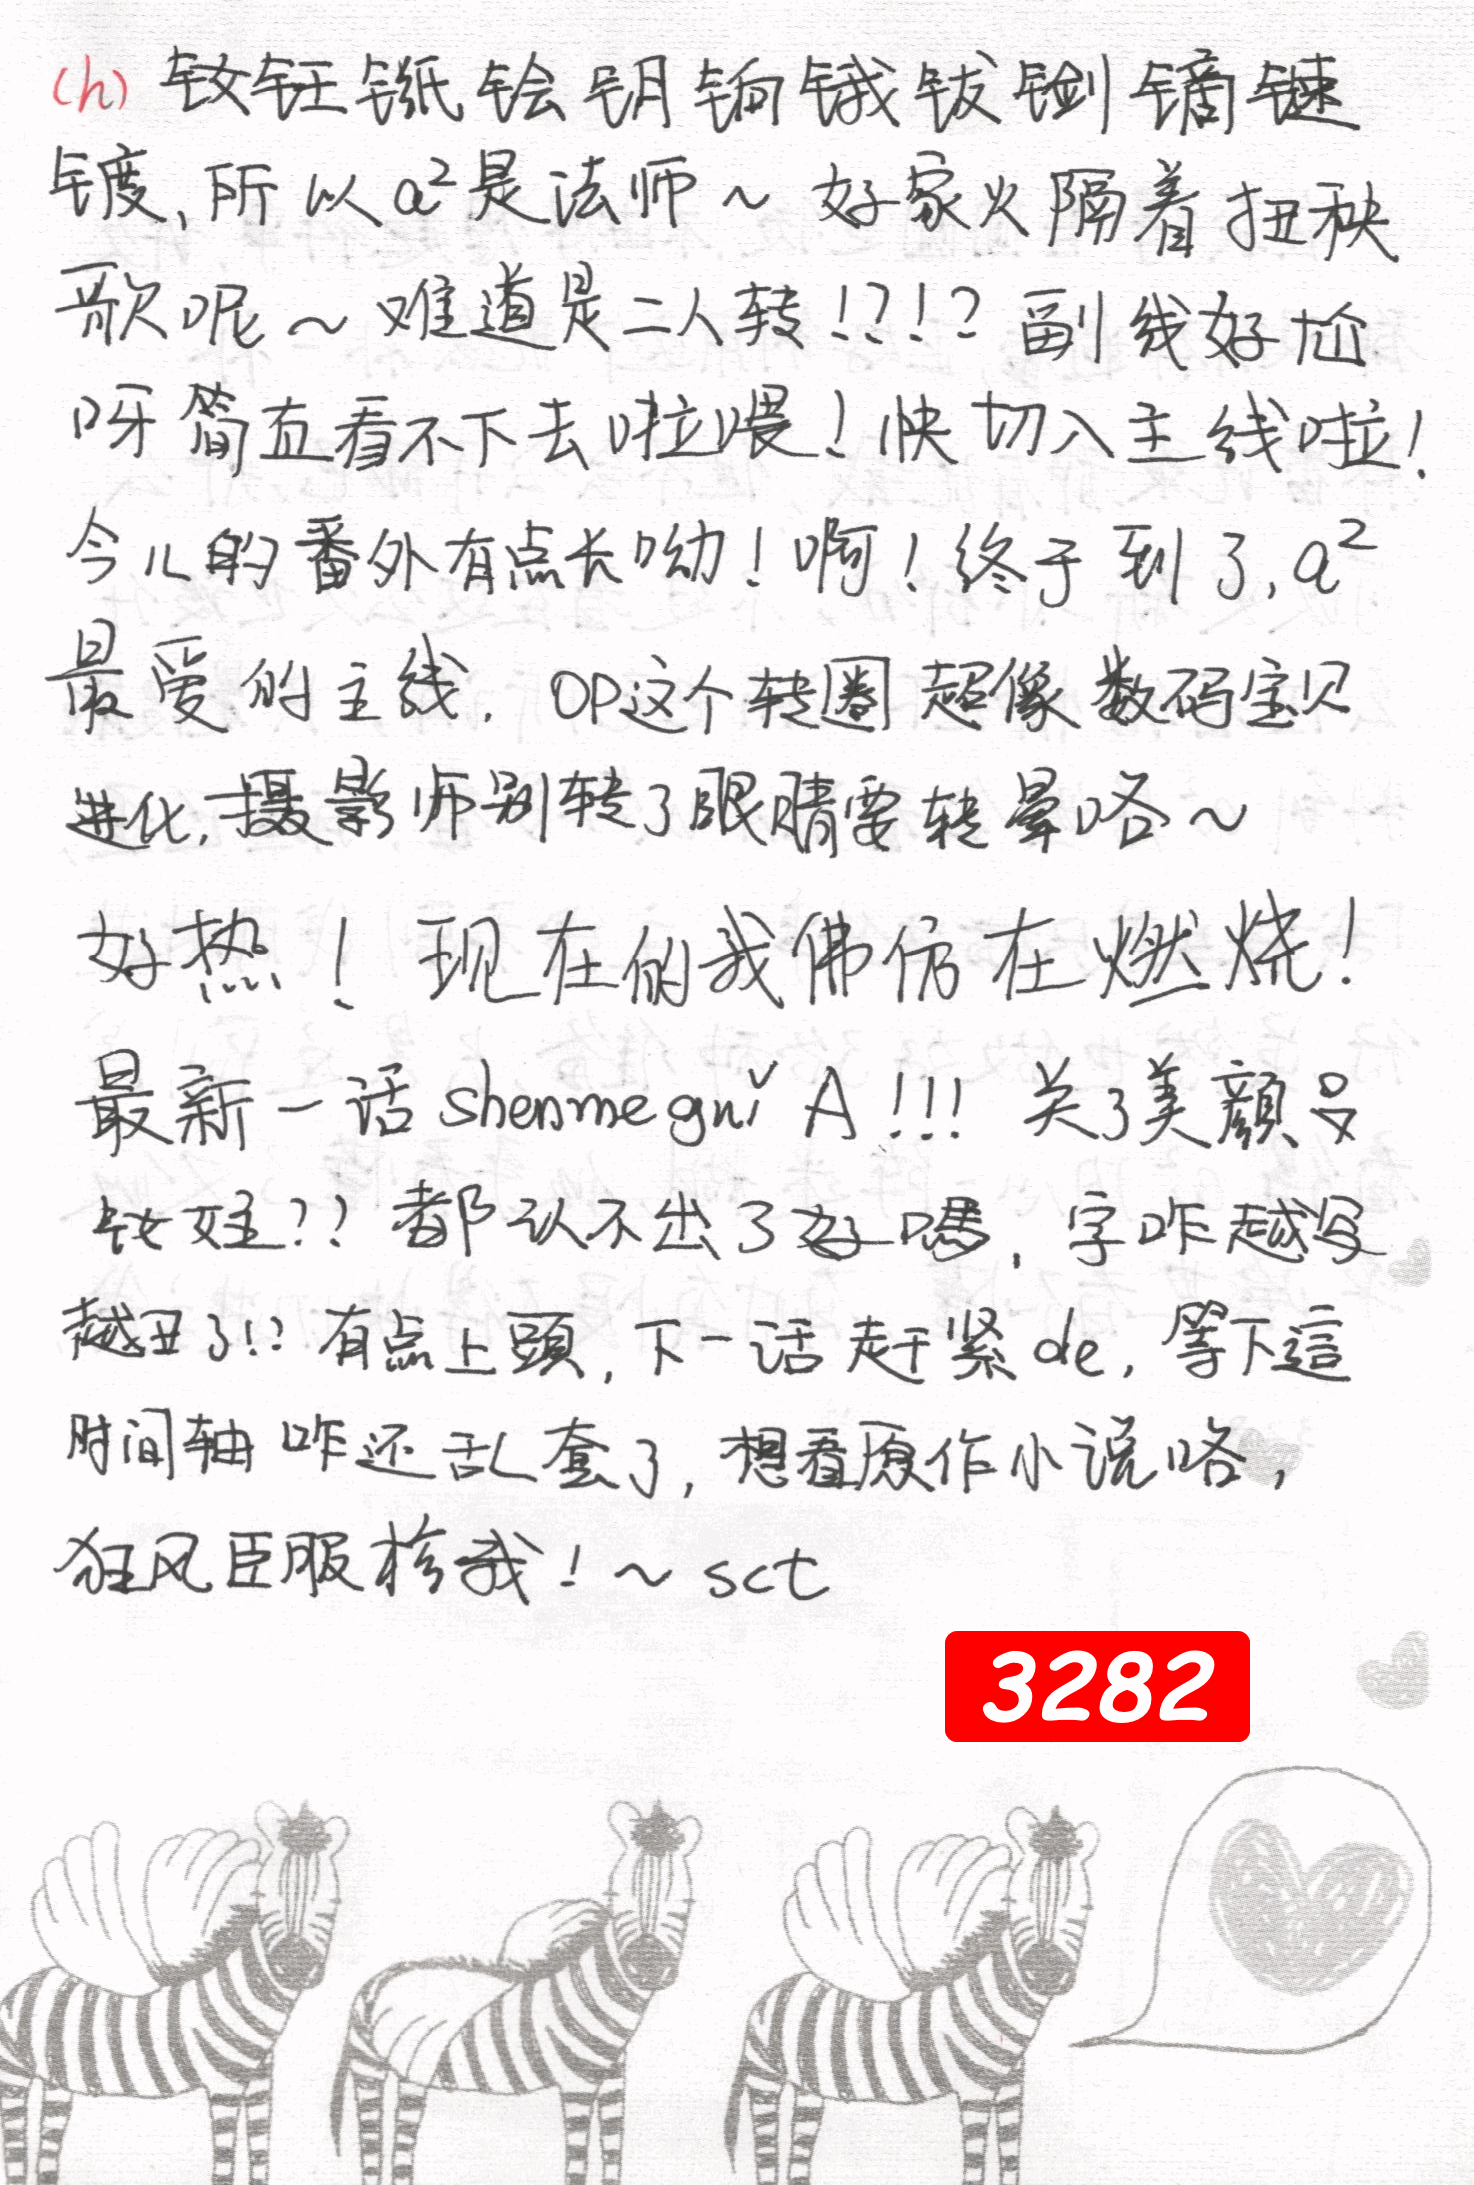 (h) 钕钰镪铃钥铂锇钹锏镝键
镀,所以a²是法师～好家火隔着扭秧
歌呢～难道是二人转!?!?副线好尬
呀简直看不下去啦喂!快切入主线啦!
今儿的番外有点长呦!啊!终于到了,a²
最爱的主线.OP这个转圈超像数码宝贝
进化,摄影师别转了眼睛要转晕咯～
好热!现在的我佛仿在燃烧!
最新一话shenme guǐ A!!!关了美顔号
钕娃??都认不出了好嗎,字咋越写
越丑了!?有点上頭,下一话赶紧de,等下這
时间轴咋还乱套了,想看原作小说咯,
狂风臣服於我!～sct
3282